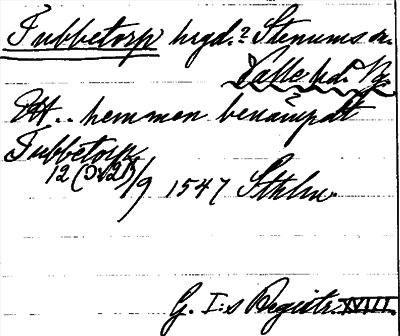 Tubbetorp hrgd.? Stenums sn.
Valle hd. Vg.
Ett .. hemman benämpdt
Tubbetorp
12 (DV2?)/9 1547 Sthlm
G. I:s Registr. XVIII